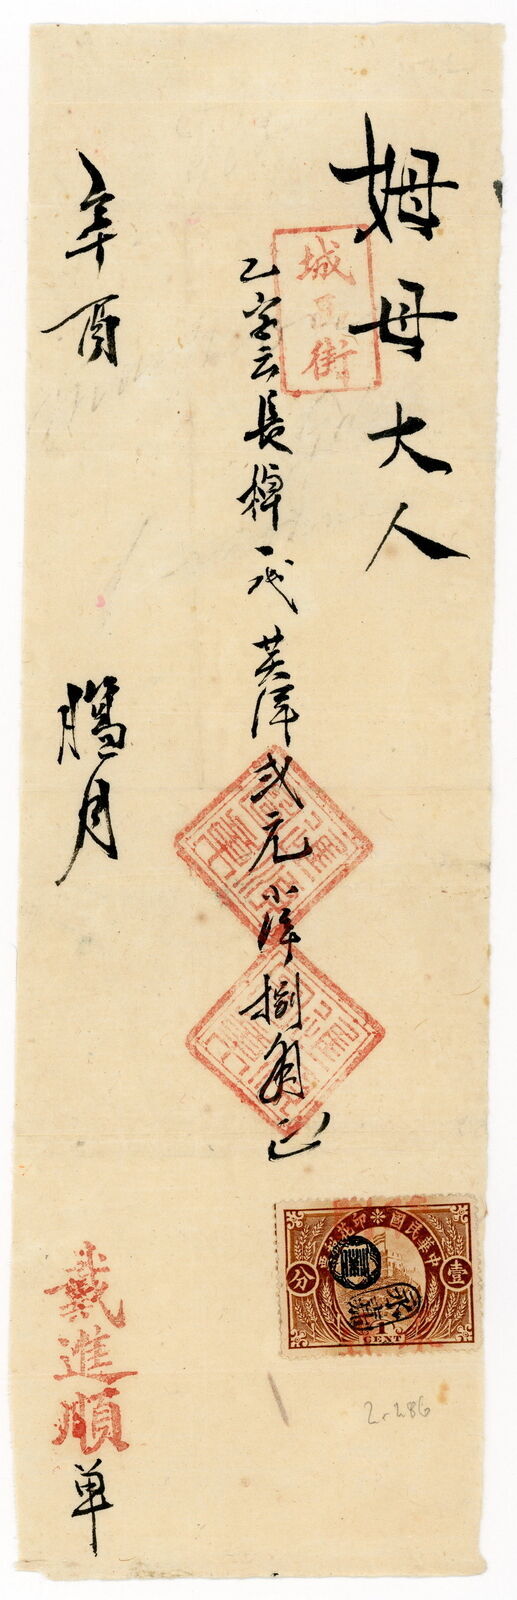 姆母大人
城西街
乙字云長樟一戎 英洋弍元 小洋捌角正
辛酉 臘月
戴進順单
中華民國印花稅票
壹
分
1
CENT
2.286